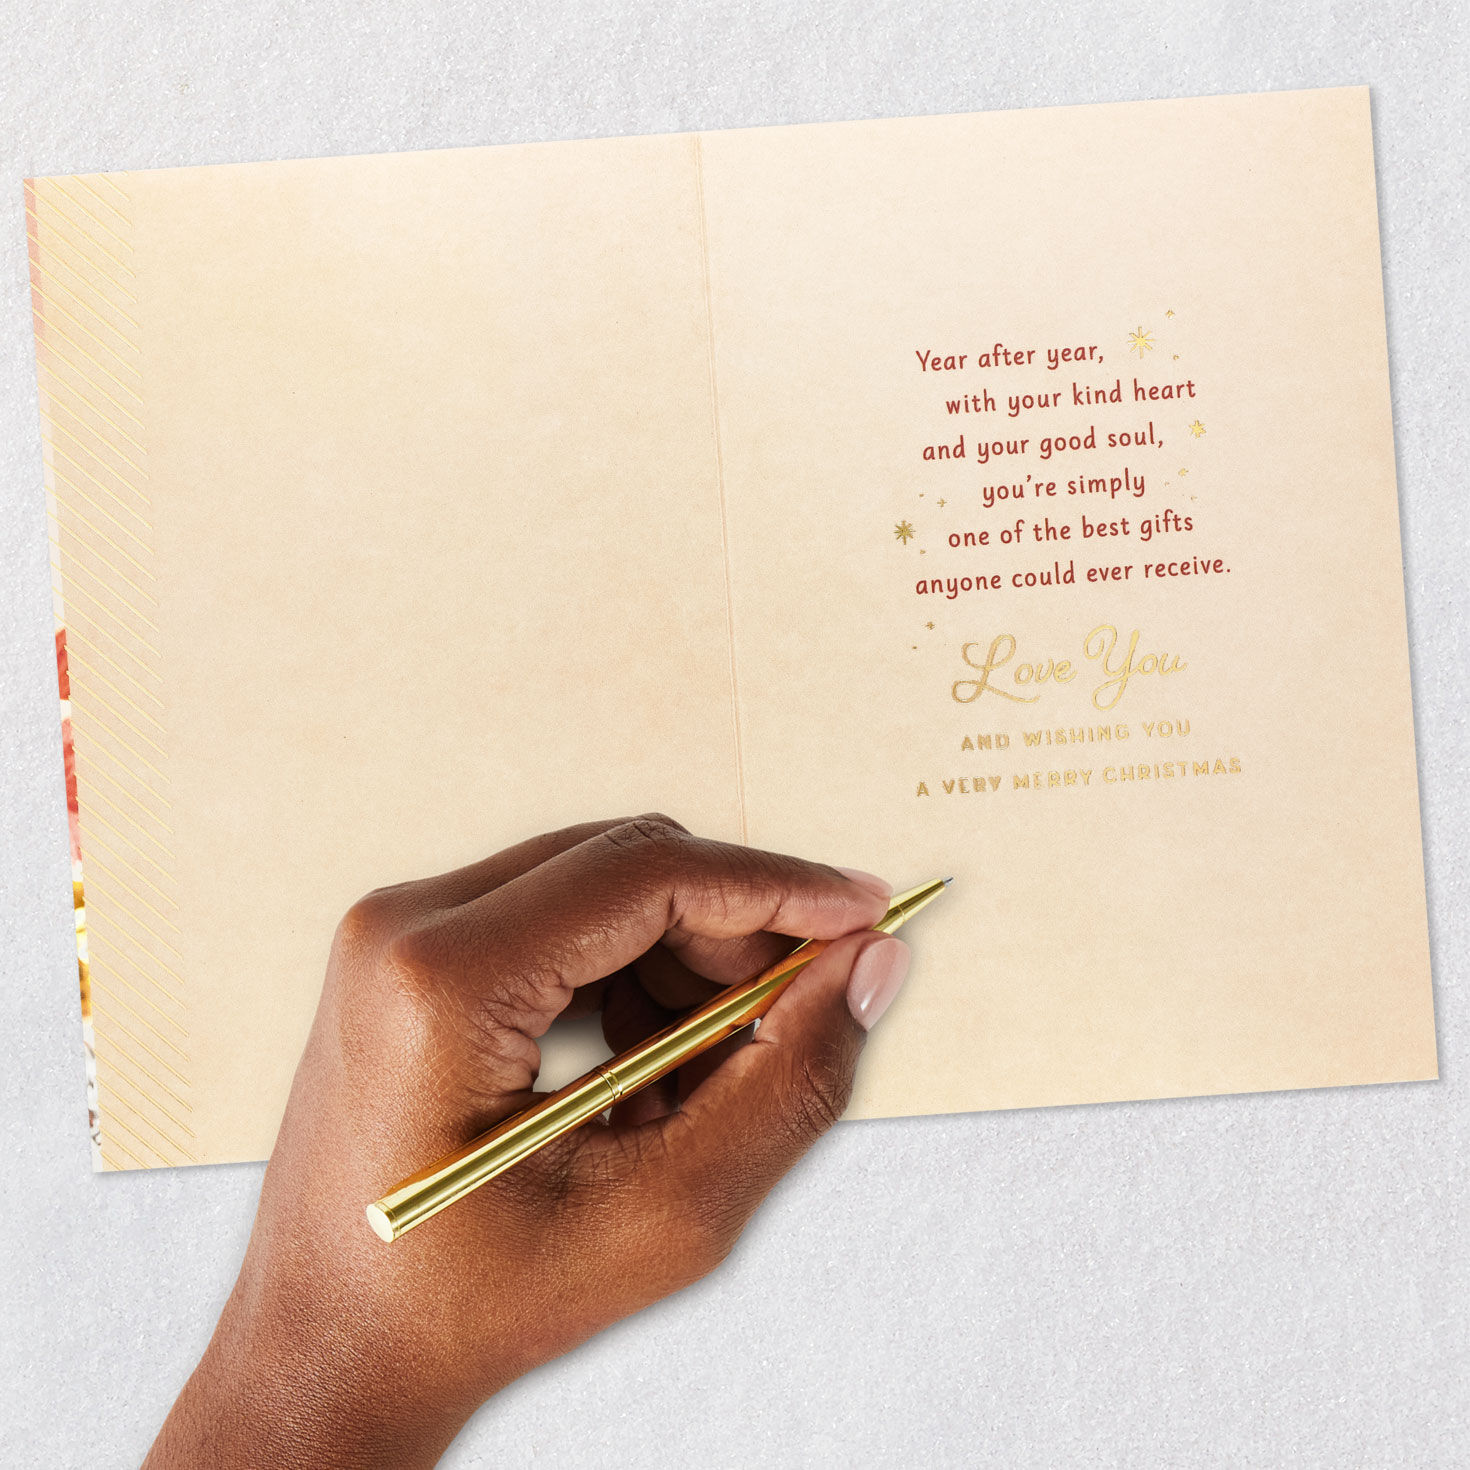 Year after year,
with your kind heart
and your good soul,
you're simply
one of the best gifts
anyone could ever receive.
Love You
AND WISHING YOU
A VERY MERRY CHRISTMAS